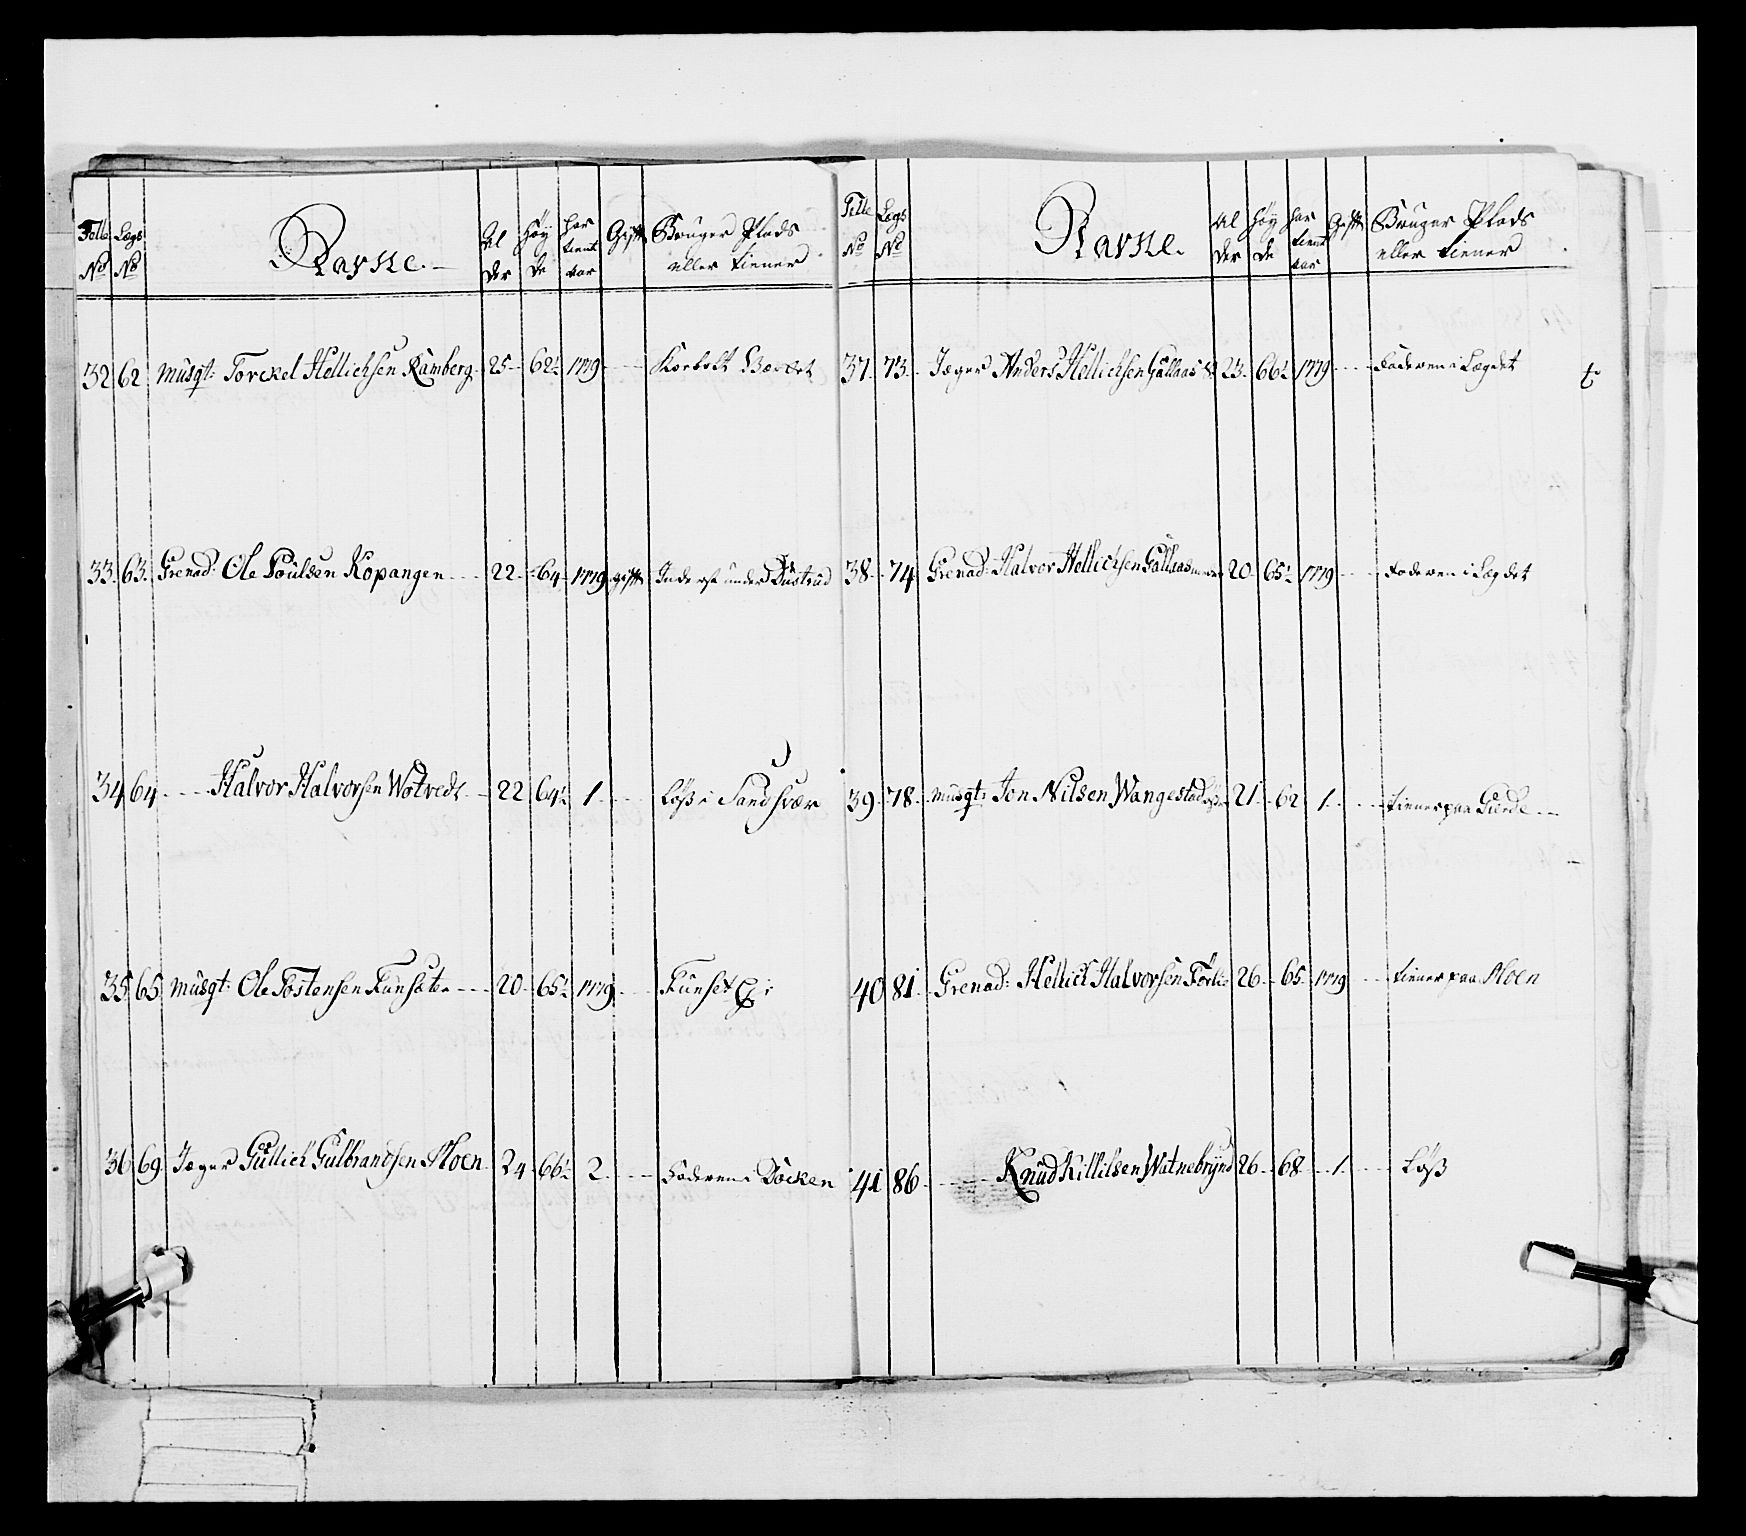 Tolle No Lægs No Navne. Alder Høyde har tient aar Gift Bruger Plads eller tiener
32 62 Musqt: Torckel Hellichsen Ramberg 25 62½ 1779
33 63 Grenad: Ole Poulsen Kopangen 22 64 1779 gift Inderst under
34 64 Halvor Halvorsen Wotvedt 22 64½ 1 Løss i Sandsvær
35 65 Musqt: Ole Tostensen Funsæter 20 65½ 1779 Funset
36 69 Jæger Gullich Gulbrandsen Moen 24 66½ 2 Faderen i Docken
Tolle No Lægs No Navne. Alder Høyde har tient aar Gift Bruger Plads eller tiener
37 73 Jæger Anders Hellichsen Gallaas 23 66½ 1779 Faderen i Lægdet
38 74 Grenad: Halvor Hellichsen Gallaas 20 65½ 1779 Faderen i Lægdet
39 78 Musqt: Jon Nilsen Wangestad 21 62 1 tiener paa Gierde
40 81 Grenad: Hellich Halvorsen 26 65 1779 tiener paa Moen
41 86 Knud Killilsen Watnebrynd 26 68 1 Løss